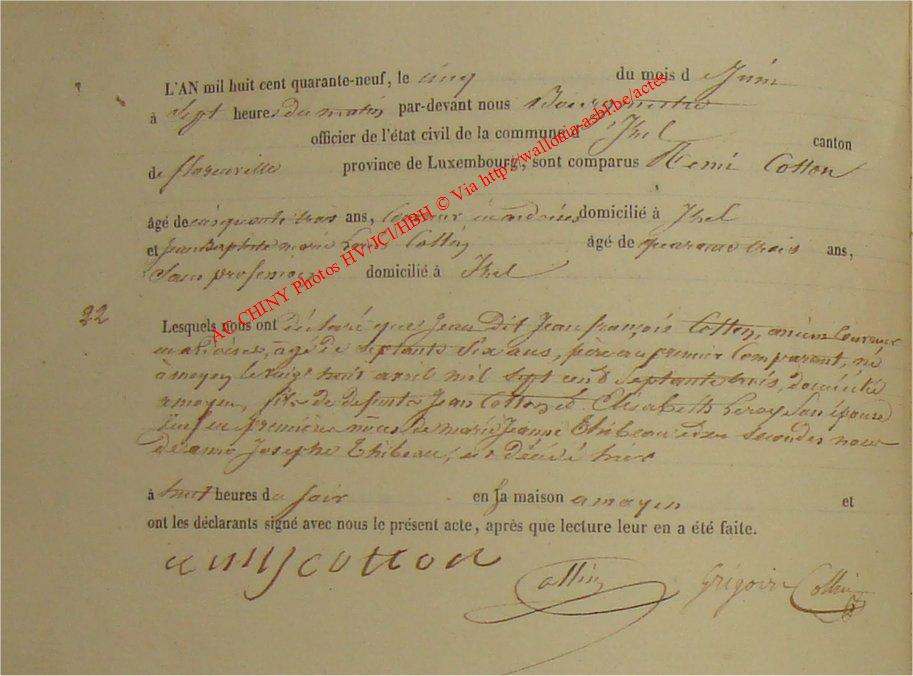 L'AN mil huit cent quarante-neuf, le cinq du mois d e Juin
à Sept heures du matin par-devant nous Bourgmestre
officier de l'état civil de la commune d' Izel canton
de florenville province de Luxembourg, sont comparus Remi Cotton
âgé de cinquante trois ans, domicilié à Izel
et Jean Baptiste marie Louis Collin âgé de quarante trois ans,
Sans profession domicilié à Izel
22
Lesquels nous ont déclaré que Jean Dit Jean françois Cotton, ancien Couvreur
, agé de Septante Six ans, père au premier Comparant, né
a moyen le vingt huit avril mil Sept cent Septante trois, domicilié
a moyen, fils de defunts Jean Cotton et Elisabeth Leroy Son épouse
Veuf en premières noces de marie Jeanne Thibeau et en Secondes noces
de anne Josephe Thibeau, est décédé hier
à huit heures du Soir en Sa maison a moyen et
ont les déclarants signé avec nous le présent acte, après que lecture leur en a été faite.
cotton
Collin Grégoire Collin
AC CHINY Photos HV/JCl/HBH © Via http://wallonia-asbl.be/actes